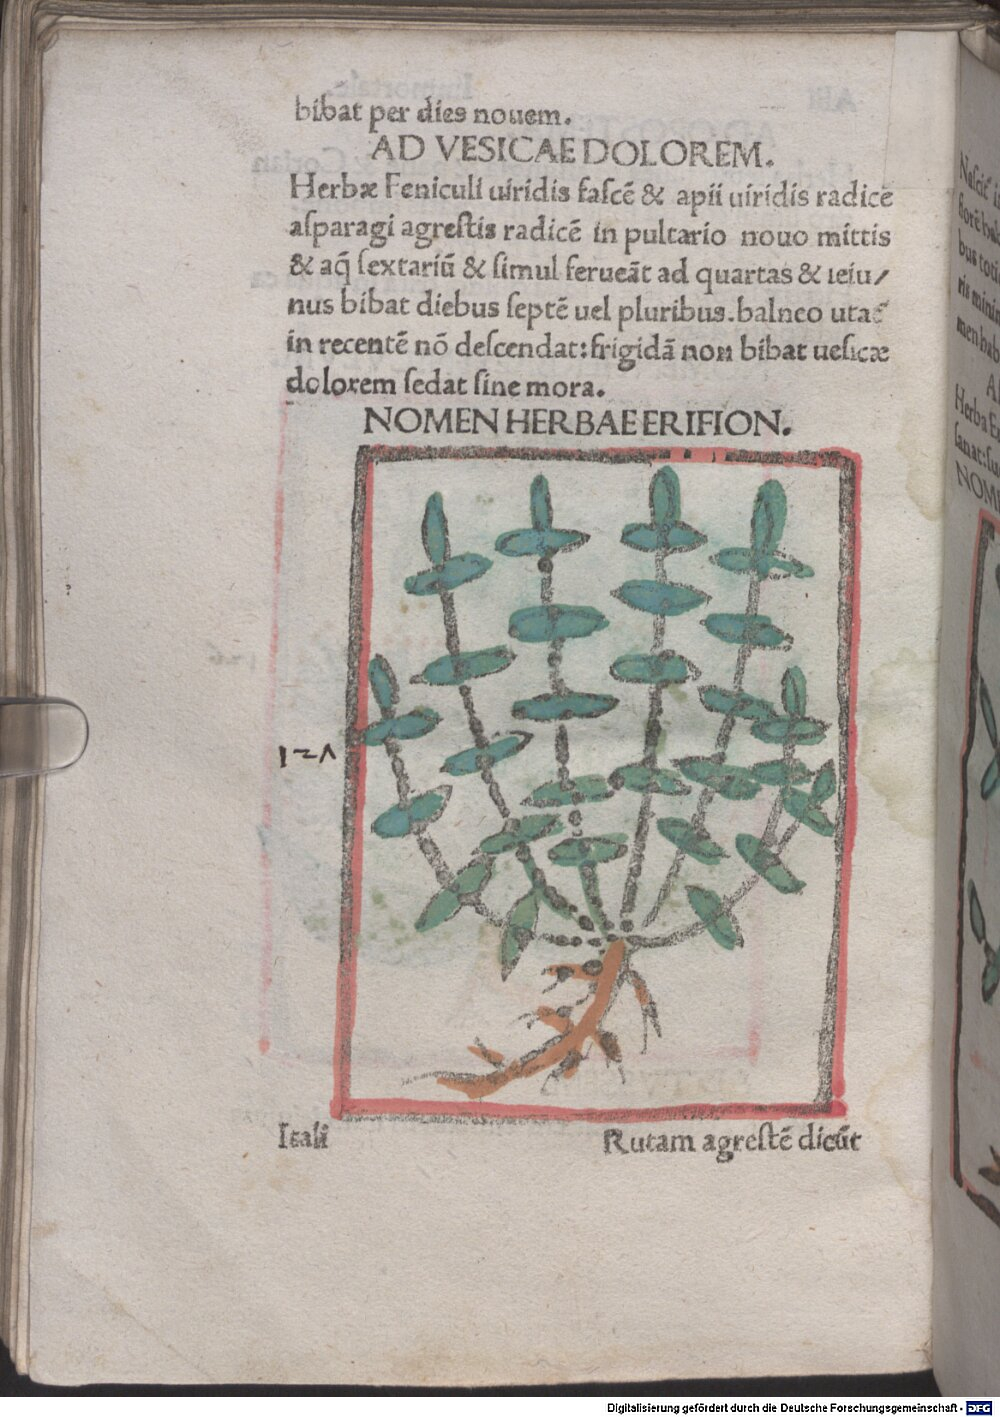 bibat per dies nouem.
AD VESICAE DOLOREM.
Herbæ Feniculi uiridis fascē & apii uiridis radicē
asparagi agrestis radicē in pultario nouo mittis
& aq̄ sextariū & simul ferueāt ad quartas & ieiu/
nus bibat diebus septē uel pluribus.balneo utat̄
in recentē nō descendat:frigidā non bibat uesicæ
dolorem sedat sine mora.
NOMEN HERBAE ERIFION.
Itali Rutam agrestē dicūt
Nascit
florē
bus toti
ris
men
Herba
sanat:
NOM
Digitalisierung gefördert durch die Deutsche Forschungsgemeinschaft - DFG